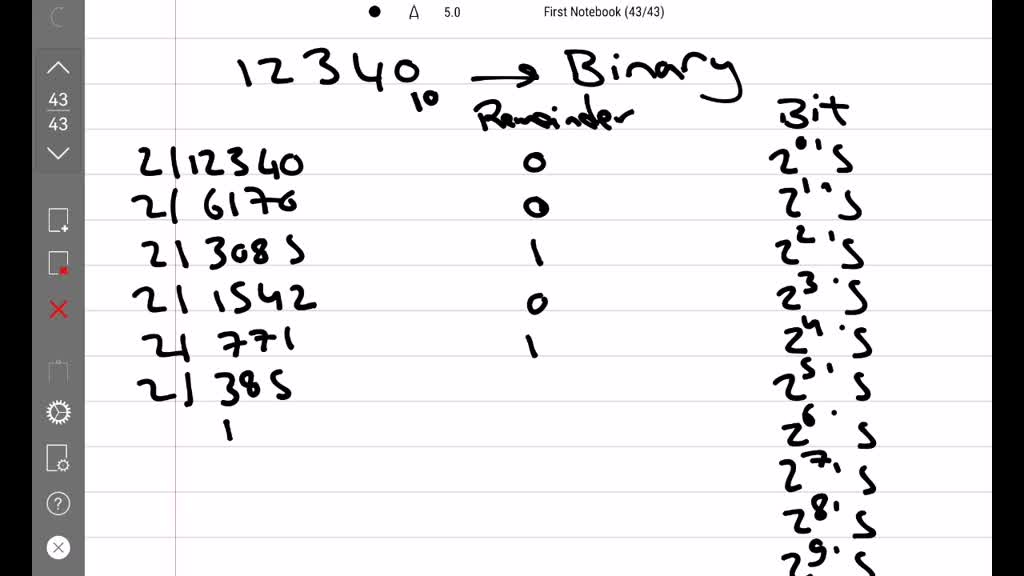 5.0 First Notebook (43/43)
43
43
12340₁₀ → Binary
Remainder Bit
2|12340 0 2⁰'s
2|6170 0 2¹'s
2|3085 1 2²'s
2|1542 0 2³'s
2|771 1 2⁴'s
2|385 2⁵'s
1 2⁶'s
2⁷'s
2⁸'s
2⁹'s